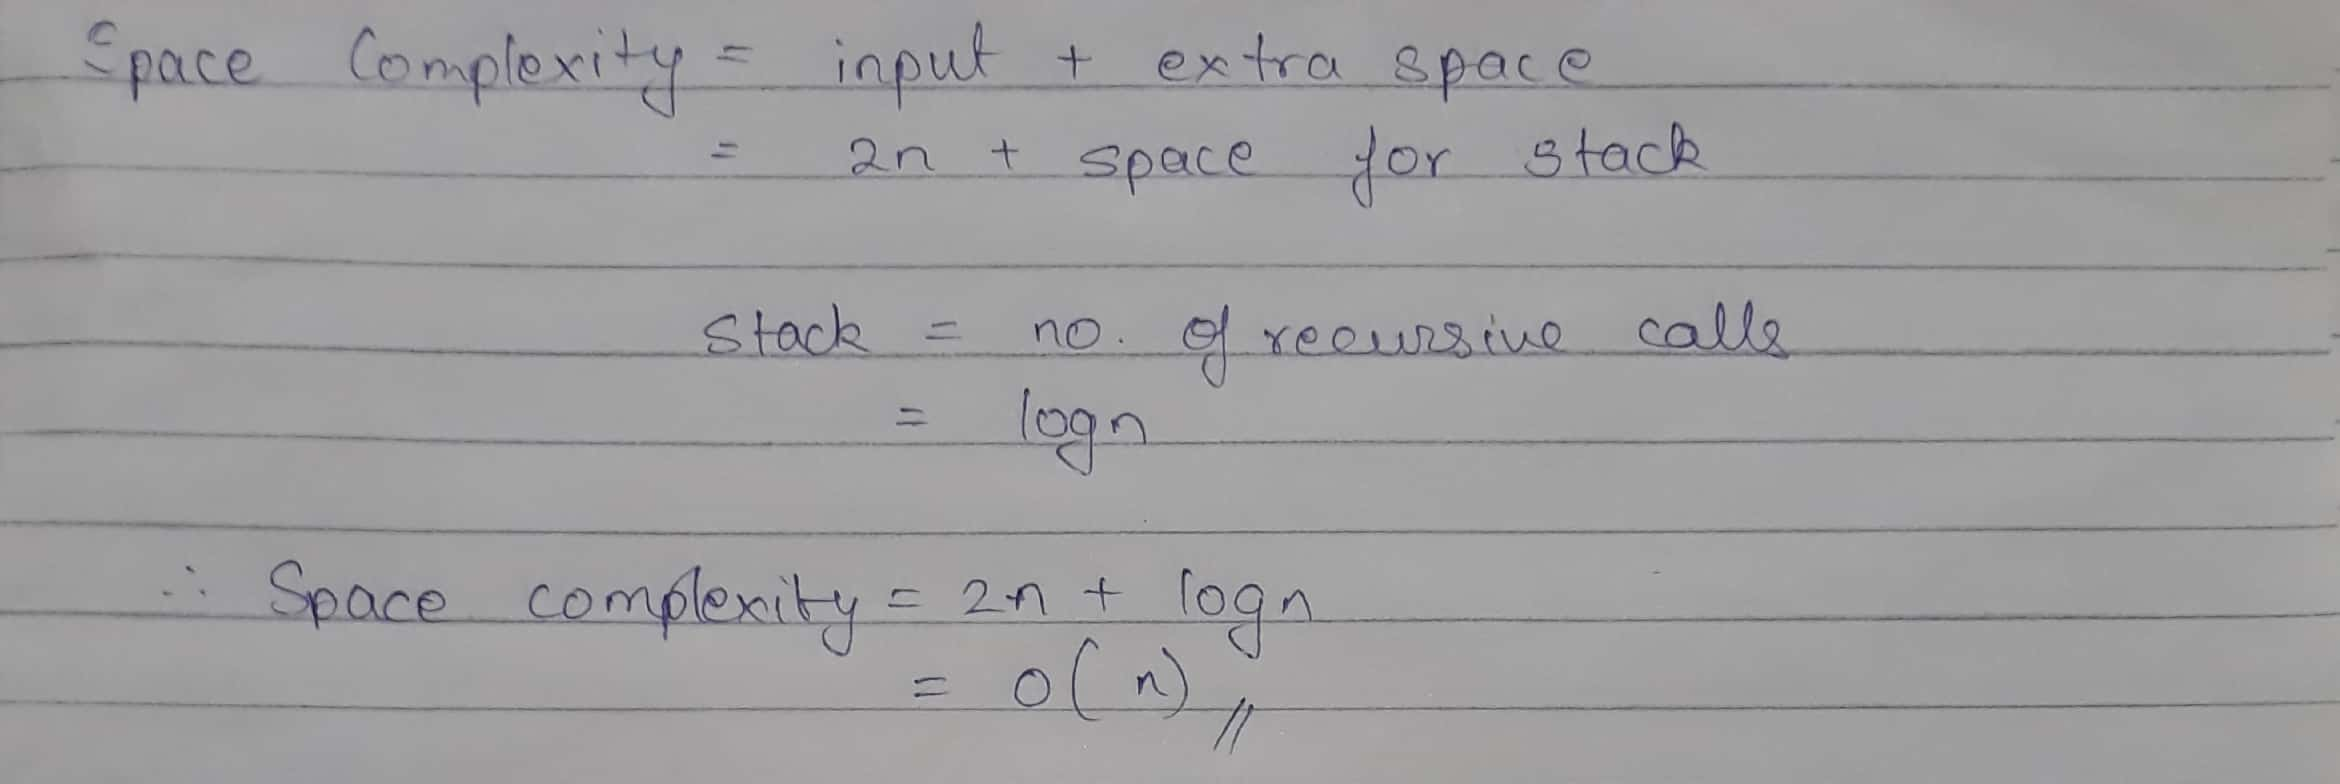 Space Complexity = input + extra space
= 2n + space for stack
Stack = no. of recursive calls
= logn
∴ Space complexity = 2n + logn
= O(n) //